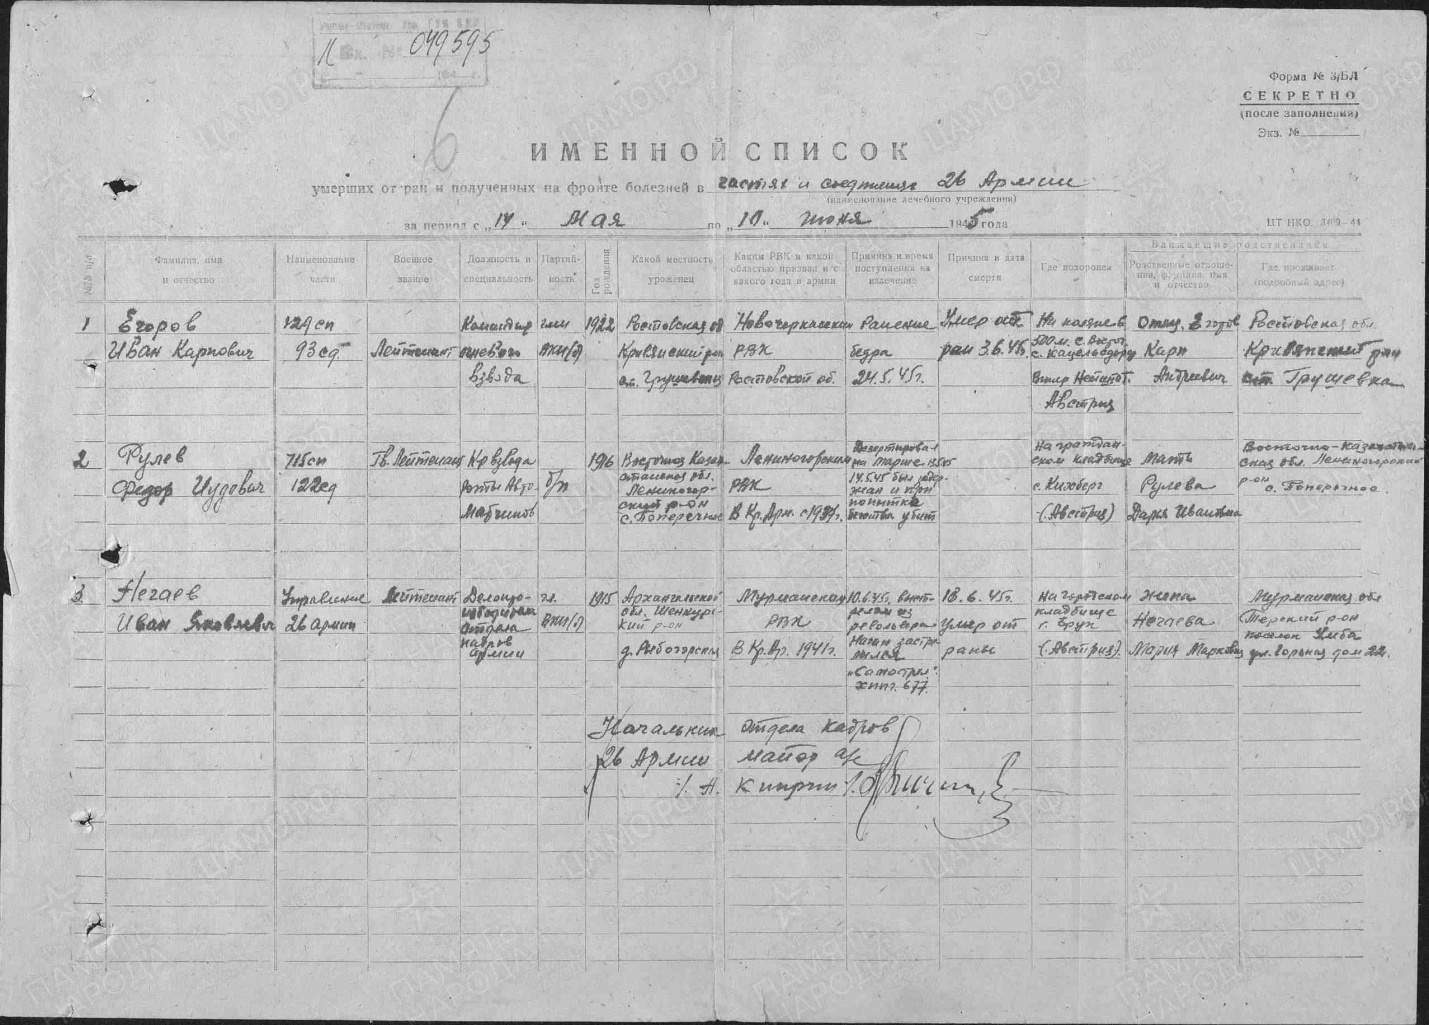 049595
6
Форма № 3/БЛ
СЕКРЕТНО
(после заполнения)
Экз. №
ИМЕННОЙ СПИСОК
умерших от ран и полученных на фронте болезней в частях и соединениях 26 Армии
(наименование лечебного учреждения)
за период с „14“ Мая по „10“ июня 1945 года
ЦТ НКО
№№ п/п
Фамилия, имя и отчество
Наименование части
Военное звание
Должность и специальность
Партийность
Год рождения
Какой местность уроженец
Каким РВК и какой областью призван и с какого года в армии
Причина и время поступления на излечение
Причина и дата смерти
Где похоронен
Ближайшие родственники
Родственные отношения, фамилия, имя и отчество
Где проживает (подробный адрес)
1
Егоров
Иван Карпович
129 сп
93 сд
Лейтенант
Командир
огневого
взвода
член
ВКП(б)
1922
Ростовская об
Кривянский рн
Новочеркасским
РВК
Ростовской об.
Ранение
бедра
24.5.45г.
Умер от
ран 3.6.45
Австрия
Отец Егоров
Карп
Андреевич
Ростовская обл.
Кривянский рн
ст. Грушевка
2
Рулев
Федор Иудович
715 сп
122 сд
Гв. Лейтенант
Кр взвода
роты Авто-
матчиков
б/п
1916
Восточно Казах-
станская обл.
Лениногор-
ский р-он
с. Поперечное
Лениногорским
РВК
В Кр. Арм. с 1937г.
Дезертировал
на марше
14.5.45 был задер-
жан и при
попытке
бегства убит
На граждан-
ском кладбище
с. Кихберг
(Австрия)
Мать
Рулева
Дарья Ивановна
Восточно-Казахстан-
ская обл. Лениногорский
р-он
с. Поперечное
3
Негаев
Иван Яковлевич
Управление
26 армии
Лейтенант
Делопро-
изводитель
отдела
кадров
Армии
чл.
ВКП(б)
1915
Архангельской
обл. Шенкур-
ский р-он
Мурманская
РВК
В Кр. Ар. 1941г.
10.6.45г. Выст-
релом из
револьвера
Наган застре-
лился
„Самострел“.
ХППГ. 677.
18.6.45г.
умер от
раны
На городском
кладбище
г. Брук
(Австрия).
жена
Негаева
Мария Марковна
Мурманская обл
Терский р-он
поселок Умба
ул. Горная дом 22.
Начальник отдела кадров
26 Армии майор а/с